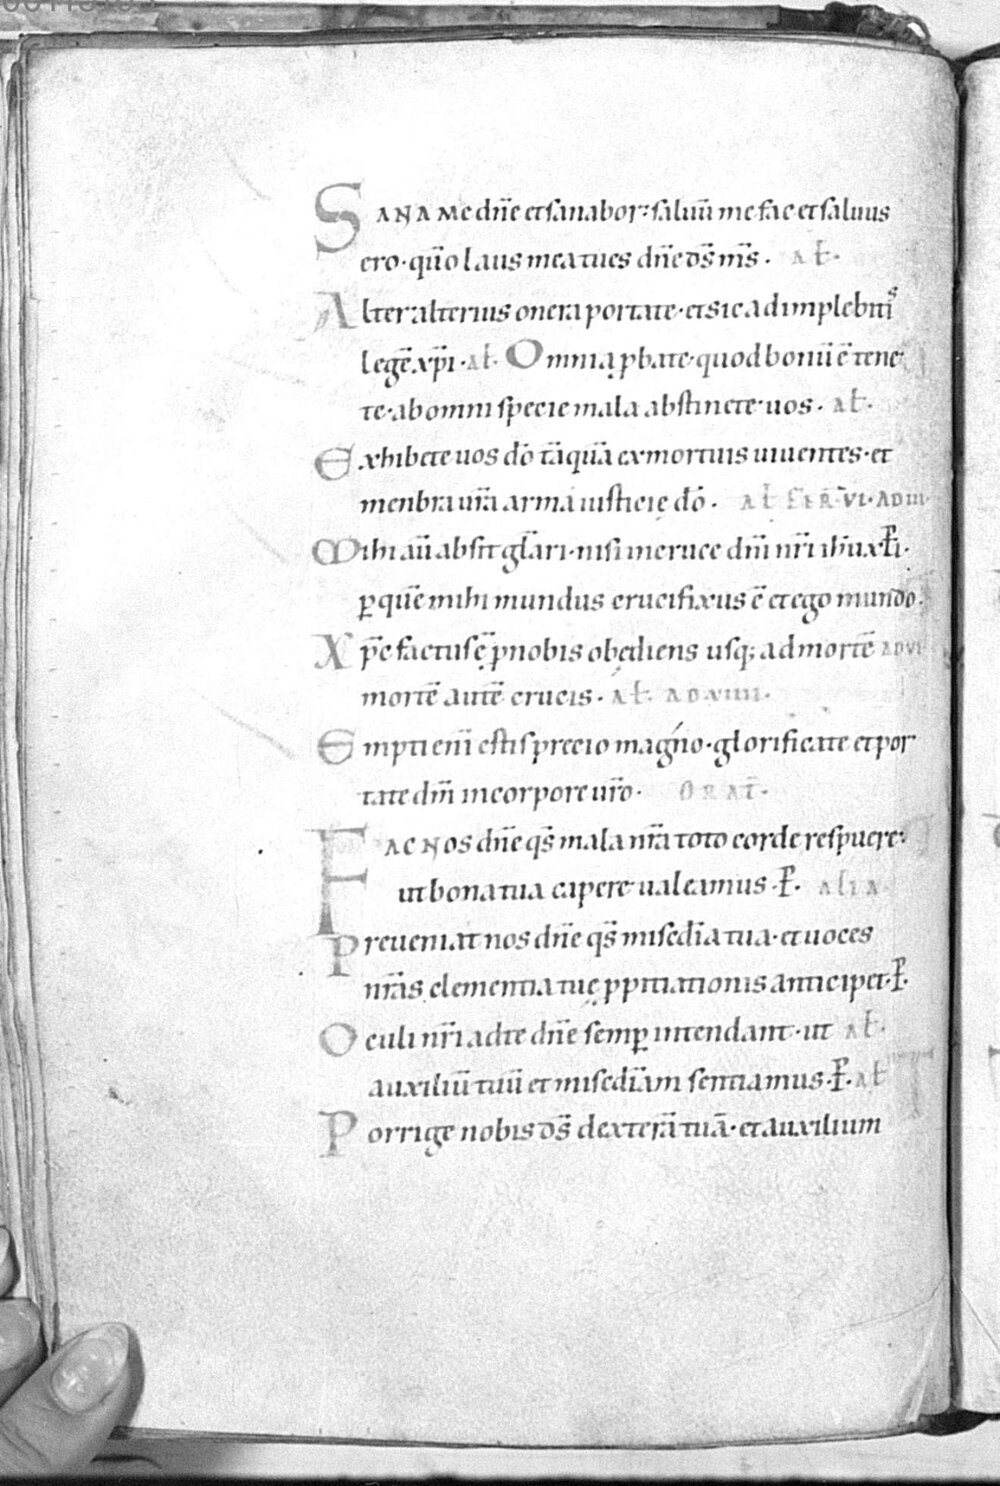 SANA me dn̄e et sanabor· saluū me fac et saluus
ero· qm̄o laus mea tu es dn̄e ds̄ ms̄. AŁ.
Alter alterius onera portate· et sic adimplebitis
legē xp̄i· AŁ. Omnia ꝓbate· quod bonū ē tene
te· ab omni specie mala abstinete uos. AŁ.
Exhibete uos dō tāquā ex mortuis uiuentes· et
menbra urā arma iusticię dō. AŁ FER· VI· AD III·
Mihi aū absit gła̅ri· nisi in cruce dn̄i nr̄i ih̄u xp̄i·
ꝑ quē mihi mundus crucifixus ē et ego mundo.
Xp̄c factus ē ꝓ nobis obędiens usq; ad mortē AD VI
mortē autē crucis· AŁ. AD VIIII.
Empti enī estis precio magno· glorificate et por
tate dm̄ in corpore uro· ORAT̄.
FAC NOS dn̄e qs̄ mala nr̄a toto corde respuere·
ut bona tua capere ualeamus. P̄. ALIA.
Preueniat nos dn̄e qs̄ miscd̄ia tua· et uoces
nrās clementia tuę ꝓpitiationis anticipet. P̄.
Oculi nr̄i ad te dn̄e semꝑ intendant· ut AŁ.
auxiliū tuū et miscd̄iam sentiamus. P̄. AŁ
Porrige nobis ds̄ dexterā tuā· et auxilium